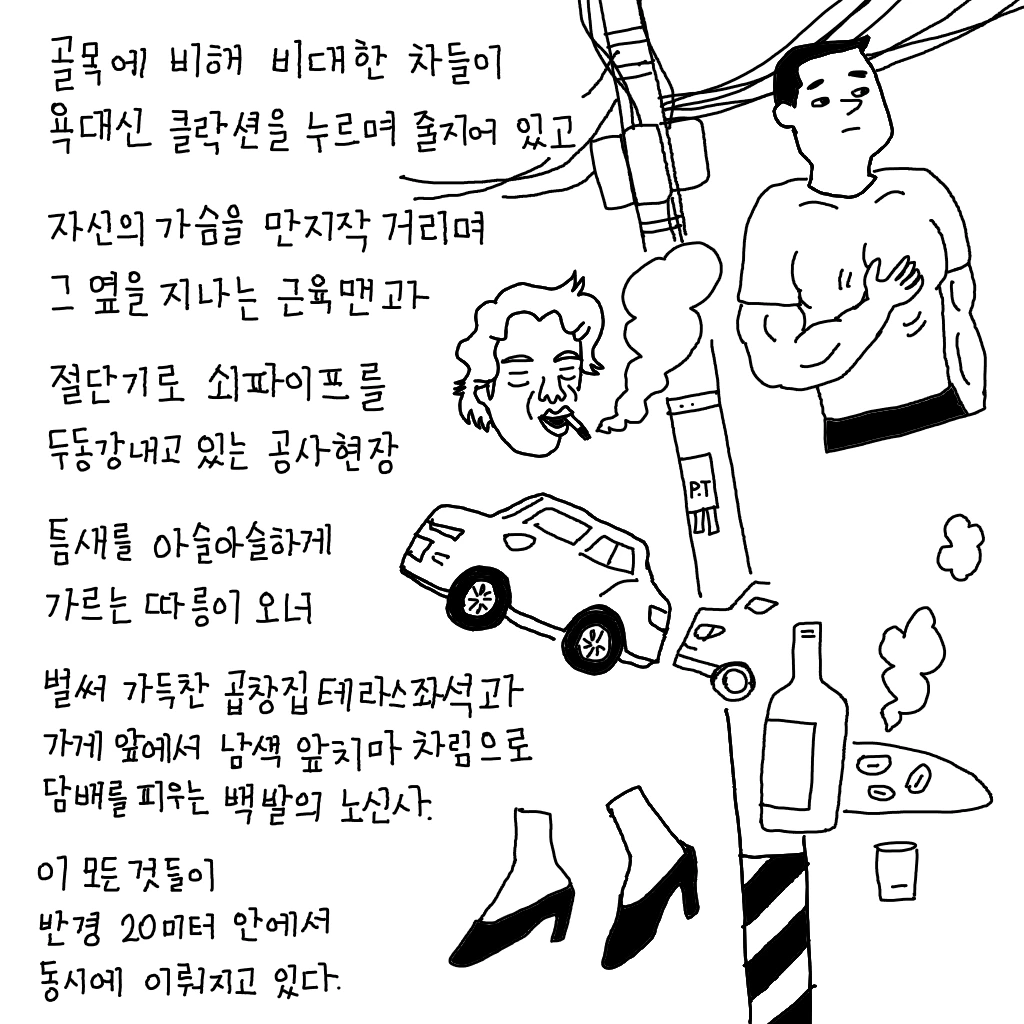 골목에 비해 비대한 차들이
욕대신 클락션을 누르며 줄지어 있고
자신의 가슴을 만지작 거리며
그 옆을 지나는 근육맨과
절단기로 쇠파이프를
두동강내고 있는 공사현장
틈새를 아슬아슬하게
가르는 따릉이 오너
벌써 가득찬 곱창집 테라스좌석과
가게 앞에서 남색 앞치마 차림으로
담배를 피우는 백발의 노신사.
이 모든것들이
반경 20미터 안에서
동시에 이뤄지고 있다.
P.T